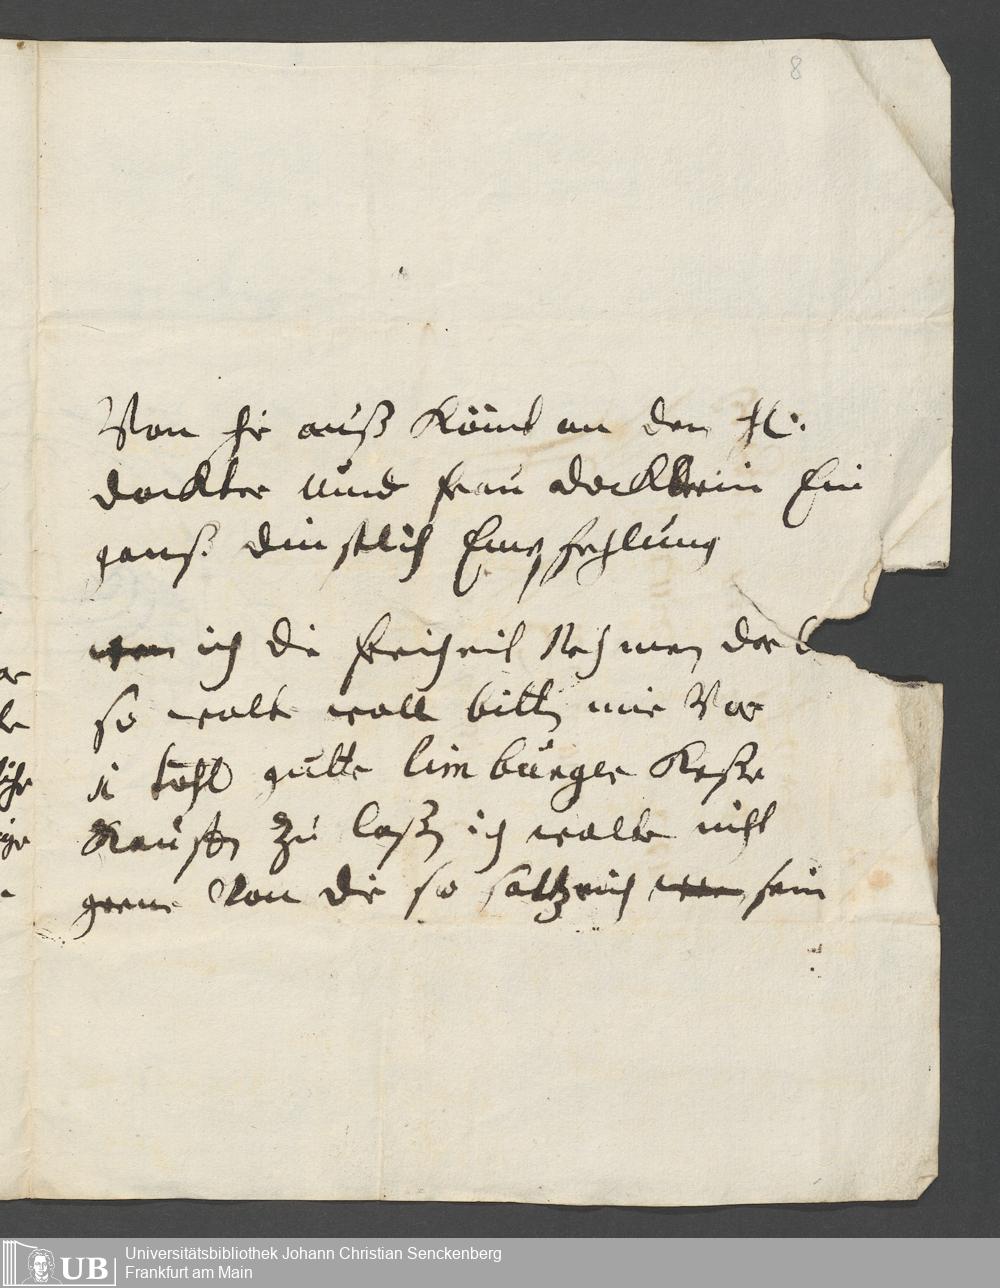 8
Von hir auß Kömt an den H:
dockter und frau dockterin Ein
ganß dinstlich Empfehlung
wen ich die freiheit Nehmen dör
so wolt woll bitten mir Vor
1 gutte limburger Keße
Kauffen zu laßen ich wolte nicht
gern Von die so saltzich sein
Universitätsbibliothek Johann Christian Senckenberg
Frankfurt am Main
UB